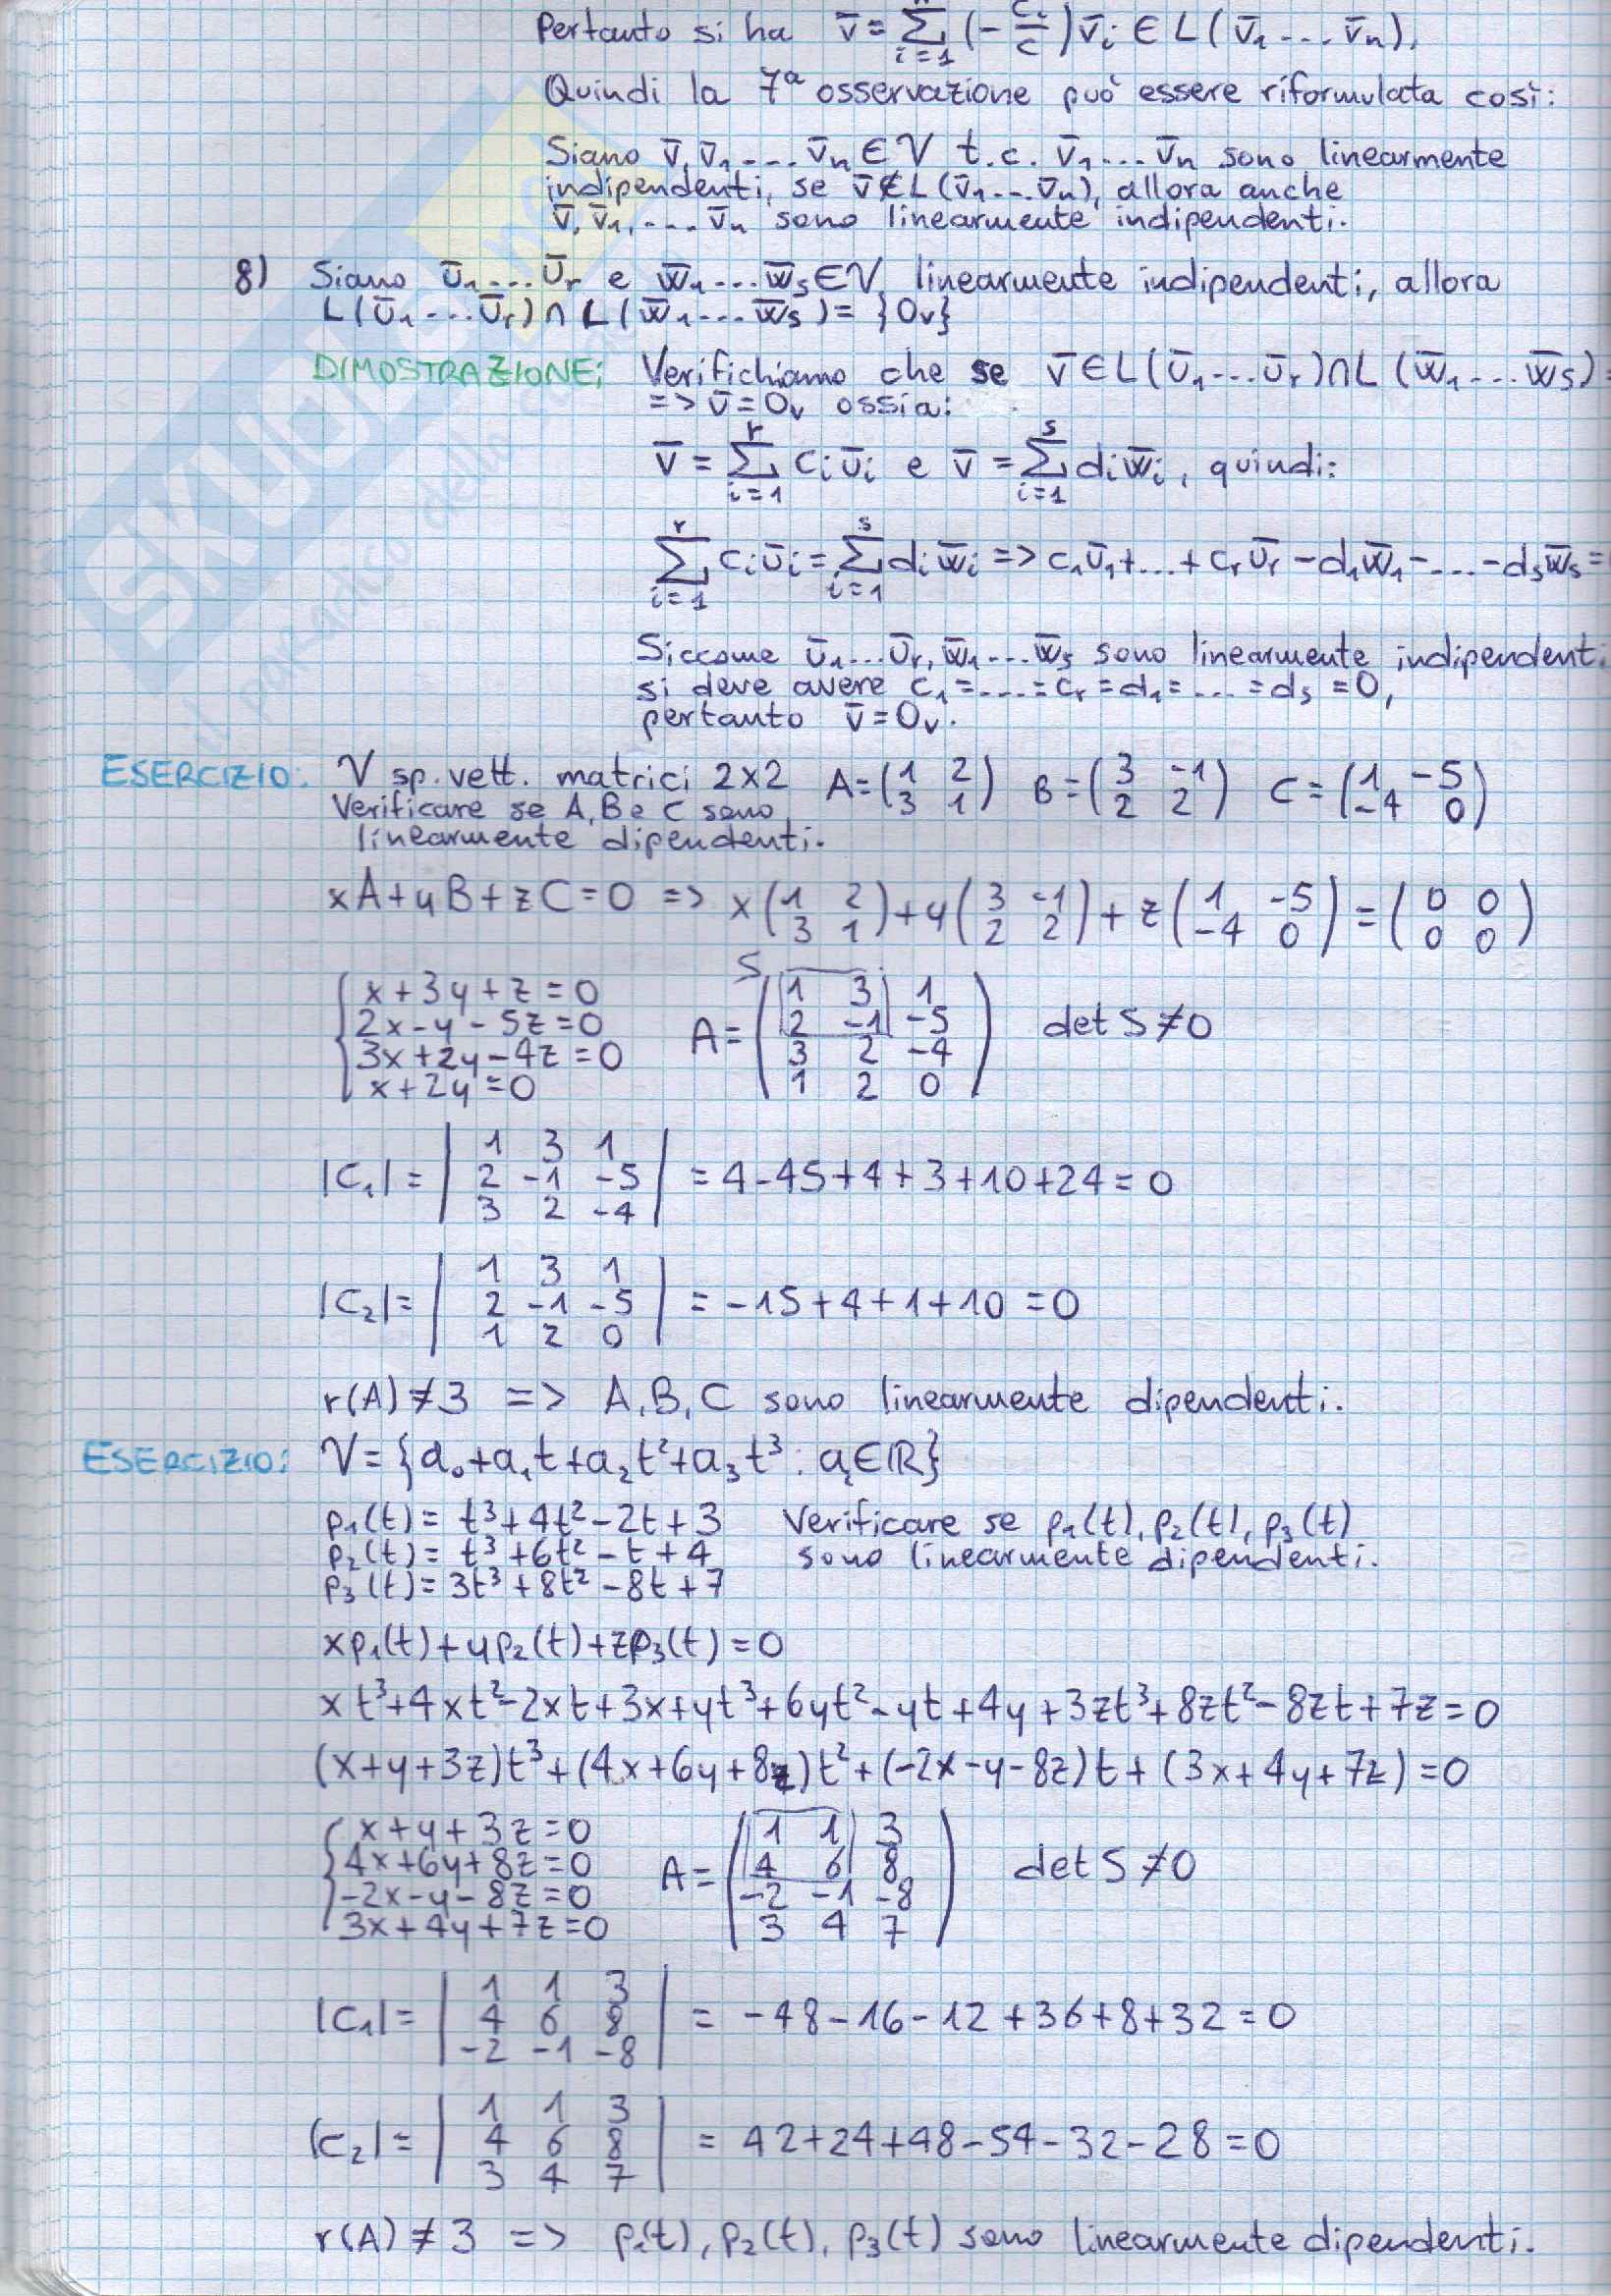 Pertanto si ha v̅ = Σ_{i=1}^{n} (-c_i/c) v̅_i ∈ L(v̅_1 ... v̅_n).
Quindi la 7ª osservazione può essere riformulata così:
Siano v̅, v̅_1 ... v̅_n ∈ V t.c. v̅_1 ... v̅_n sono linearmente
indipendenti, se v̅ ∉ L(v̅_1 ... v̅_n), allora anche
v̅, v̅_1, ... v̅_n sono linearmente indipendenti.
8) Siano u̅_1 ... u̅_r e w̅_1 ... w̅_s ∈ V linearmente indipendenti, allora
L(u̅_1 ... u̅_r) ∩ L(w̅_1 ... w̅_s) = {0_V}
DIMOSTRAZIONE: Verifichiamo che se v̅ ∈ L(u̅_1 ... u̅_r) ∩ L(w̅_1 ... w̅_s) =
=> v̅ = 0_V ossia:
v̅ = Σ_{i=1}^{r} c_i u̅_i e v̅ = Σ_{i=1}^{s} d_i w̅_i, quindi:
Σ_{i=1}^{r} c_i u̅_i = Σ_{i=1}^{s} d_i w̅_i => c_1 u̅_1 + ... + c_r u̅_r - d_1 w̅_1 - ... - d_s w̅_s =
Siccome u̅_1 ... u̅_r, w̅_1 ... w̅_s sono linearmente indipendenti
si deve avere c_1 = ... = c_r = d_1 = ... = d_s = 0,
pertanto v̅ = 0_V.
ESERCIZIO: V sp. vett. matrici 2x2 A = (1 2; 3 1) B = (3 -1; 2 2) C = (1 -5; -4 0)
Verificare se A, B e C sono
linearmente dipendenti.
xA + yB + zC = 0 => x (1 2; 3 1) + y (3 -1; 2 2) + z (1 -5; -4 0) = (0 0; 0 0)
S
{ x + 3y + z = 0
2x - y - 5z = 0
3x + 2y - 4z = 0
x + 2y = 0
A = (1 3 1; 2 -1 -5; 3 2 -4; 1 2 0) det S ≠ 0
|C_1| = | 1 3 1; 2 -1 -5; 3 2 -4 | = 4 - 45 + 4 + 3 + 10 + 24 = 0
|C_2| = | 1 3 1; 2 -1 -5; 1 2 0 | = -15 + 4 + 1 + 10 = 0
r(A) ≠ 3 => A, B, C sono linearmente dipendenti.
ESERCIZIO: V = {a_0 + a_1 t + a_2 t² + a_3 t³ : a_i ∈ ℝ}
p_1(t) = t³ + 4t² - 2t + 3 Verificare se p_1(t), p_2(t), p_3(t)
p_2(t) = t³ + 6t² - t + 4 sono linearmente dipendenti.
p_3(t) = 3t³ + 8t² - 8t + 7
x p_1(t) + y p_2(t) + z p_3(t) = 0
xt³ + 4xt² - 2xt + 3x + yt³ + 6yt² - yt + 4y + 3zt³ + 8zt² - 8zt + 7z = 0
(x + y + 3z)t³ + (4x + 6y + 8z)t² + (-2x - y - 8z)t + (3x + 4y + 7z) = 0
{ x + y + 3z = 0
4x + 6y + 8z = 0
-2x - y - 8z = 0
3x + 4y + 7z = 0
A = (1 1 3; 4 6 8; -2 -1 -8; 3 4 7) det S ≠ 0
|C_1| = | 1 1 3; 4 6 8; -2 -1 -8 | = -48 - 16 - 12 + 36 + 8 + 32 = 0
|C_2| = | 1 1 3; 4 6 8; 3 4 7 | = 42 + 24 + 48 - 54 - 32 - 28 = 0
r(A) ≠ 3 => p_1(t), p_2(t), p_3(t) sono linearmente dipendenti.